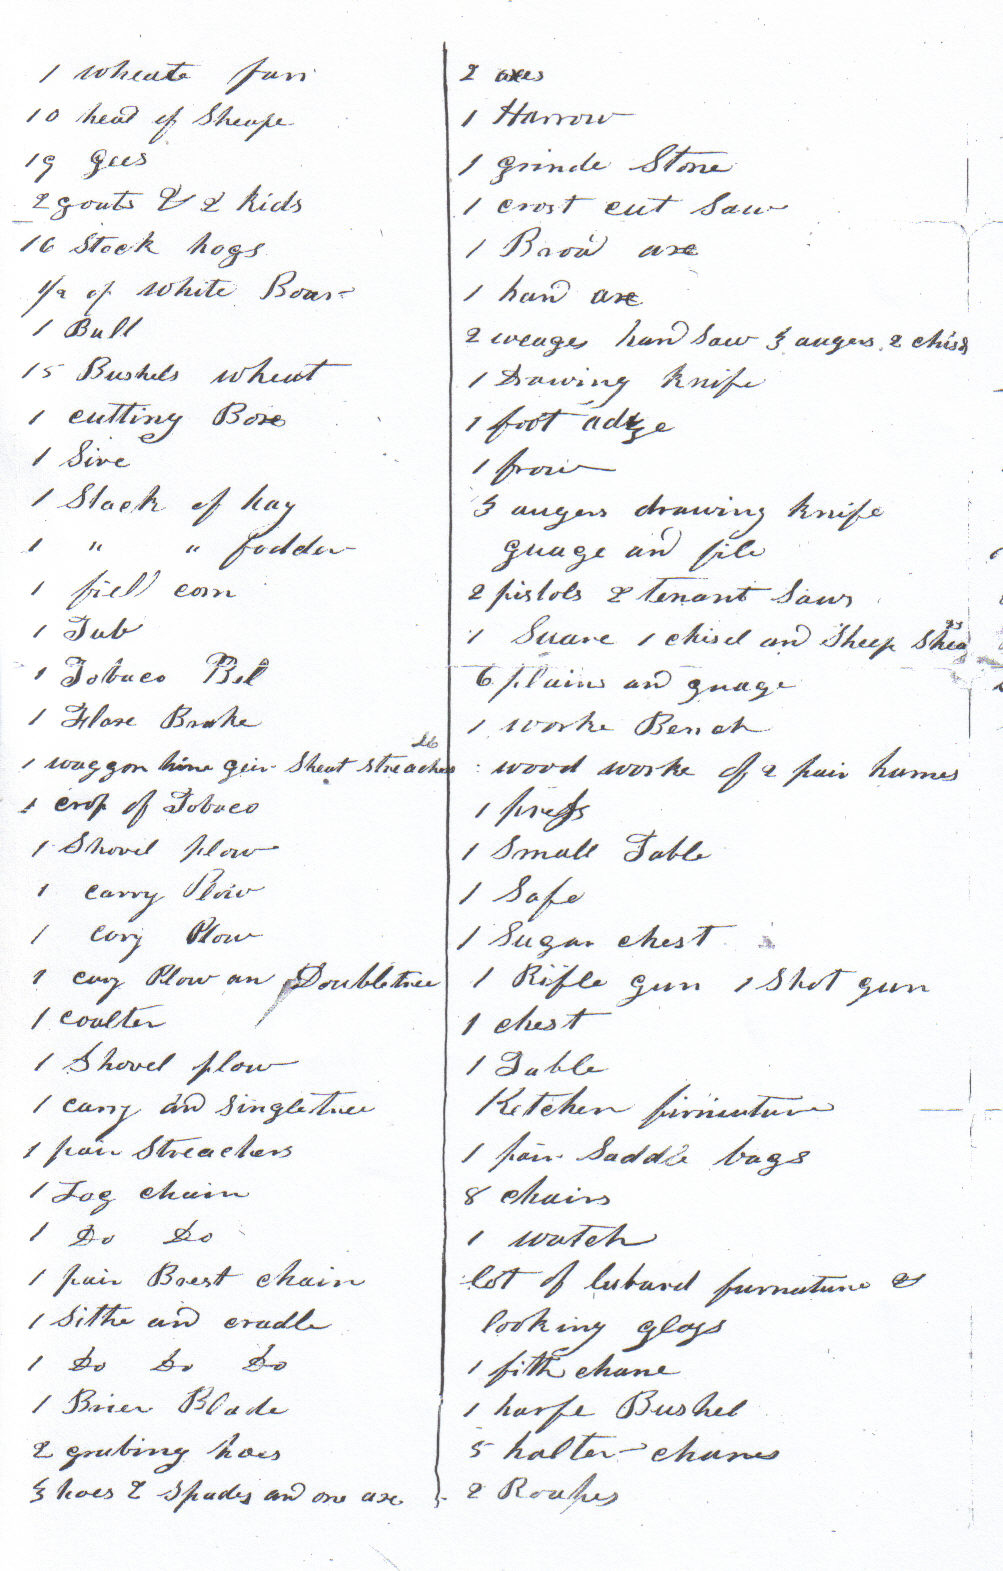 1 wheate fan
10 head of Sheape
19 gees
2 goats & 2 kids
16 Stock hogs
1/2 of white Boar
1 Bull
15 Bushels wheat
1 cutting Boxe
1 Sive
1 Stack of hay
1 " " fodder
1 field corn
1 Tub
1 Tobaco Bed
1 Flaxe Brake
1 waggon hine geir Sheat Streachers
1 crop of Tobaco
1 Shovel plow
1 carry Plow
1 cary Plow
1 cary Plow an Doubletree
1 coulter
1 Shovel plow
1 carry and Singletree
1 pair Streachers
1 Log chain
1 Do Do
1 pair Brest chain
1 Sithe and cradle
1 Do Do Do
1 Brier Blade
2 grubing hoes
3 hoes 2 Spades and one axe
2 axes
1 Harrow
1 grinde Stone
1 crost cut Saw
1 Broad axe
1 hand axe
2 weages hand Saw 3 augers 2 chisels
1 Drawing knife
1 foot adze
1 frow
3 augers drawing knife
guage and file
2 pistols 2 tenant Saws
1 Suare 1 chisel and Sheep Shears
6 plains and guage
1 worke Bench
wood worke of 2 pair hames
1 press
1 Small Table
1 Safe
1 Sugar chest
1 Rifle gun 1 Shot gun
1 chest
1 Table
Ketchen firniuture
1 pair Saddle bags
8 chairs
1 watch
lot of cubard furnature &
looking glass
1 fith chane
1 harfe Bushel
5 halter chanes
2 Roapes